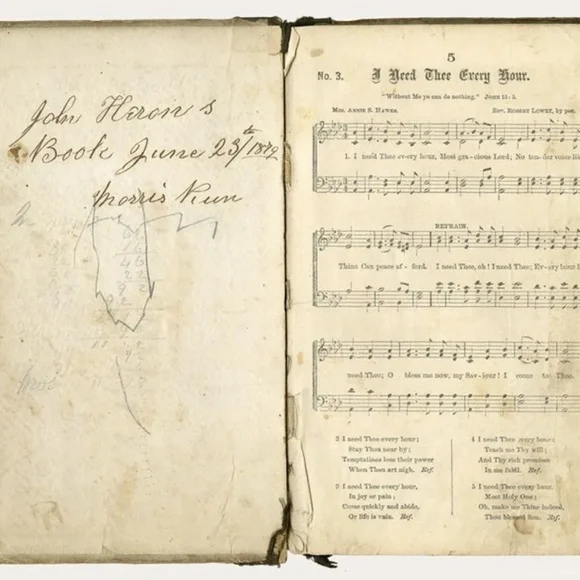 John Heron s
Book June 23/th 1879
Morris Run
5
No. 3. I Need Thee Every Hour.
"Without Me ye can do nothing." JOHN 15: 5.
MRS. ANNIE S. HAWKS. REV. ROBERT LOWRY, by per.
1. I need Thee ev-ery hour, Most gra-cious Lord; No ten-der voice
REFRAIN.
Thine Can peace af-ford. I need Thee, oh! I need Thee; Ev-ery hour I
need Thee; O bless me now, my Sav-iour! I come to Thee.
2 I need Thee every hour;
Stay Thou near by;
Temptations lose their power
When Thou art nigh. Ref.
3 I need Thee every hour,
In joy or pain;
Come quickly and abide,
Or life is vain. Ref.
4 I need Thee every hour;
Teach me Thy will;
And Thy rich promises
In me fulfil. Ref.
5 I need Thee every hour,
Most Holy One;
Oh, make me Thine indeed,
Thou blessed Son. Ref.